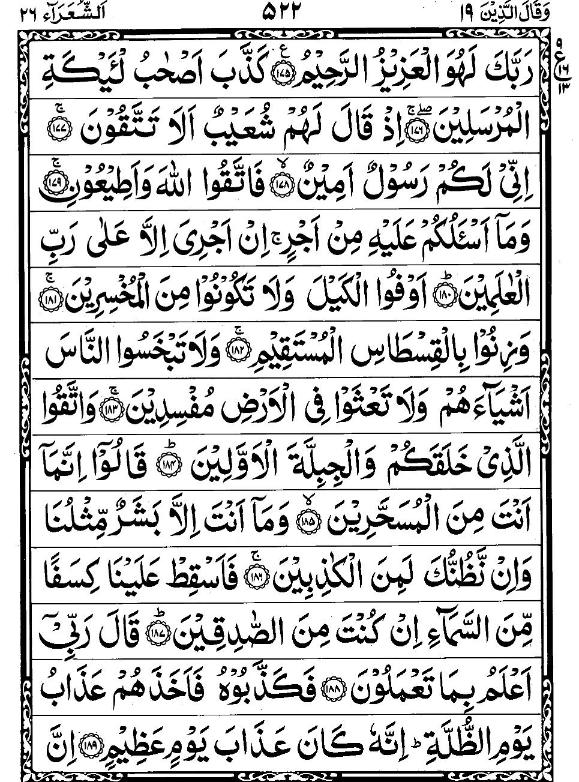 وَقَالَ الَّذِيْنَ ١٩ ٥٢٢ اَلشُّعَرَآء ٢٦
رَبَّكَ لَهُوَ الْعَزِيْزُ الرَّحِيْمُ ﴿١٧٥﴾ ع كَذَّبَ اَصْحٰبُ لْـَٔيْكَةِ
٩ ع ١٦ ١٣
الْمُرْسَلِيْنَ ﴿١٧٦﴾ ۖۚ اِذْ قَالَ لَهُمْ شُعَيْبٌ اَلَا تَتَّقُوْنَ ﴿١٧٧﴾ ۚ
اِنِّىْ لَكُمْ رَسُوْلٌ اَمِيْنٌ ﴿١٧٨﴾ ۙ فَاتَّقُوا اللّٰهَ وَاَطِيْعُوْنِ ﴿١٧٩﴾ ۚ
وَمَاۤ اَسْـَٔلُكُمْ عَلَيْهِ مِنْ اَجْرٍ ۚ اِنْ اَجْرِىَ اِلَّا عَلٰى رَبِّ
الْعٰلَمِيْنَ ﴿١٨٠﴾ ؕ اَوْفُوا الْكَيْلَ وَلَا تَكُوْنُوْا مِنَ الْمُخْسِرِيْنَ ﴿١٨١﴾ ۚ
وَزِنُوْا بِالْقِسْطَاسِ الْمُسْتَقِيْمِ ﴿١٨٢﴾ ۚ وَلَا تَبْخَسُوا النَّاسَ
اَشْيَآءَهُمْ وَلَا تَعْثَوْا فِى الْاَرْضِ مُفْسِدِيْنَ ﴿١٨٣﴾ ۚ وَاتَّقُوا
الَّذِىْ خَلَقَكُمْ وَالْجِبِلَّةَ الْاَوَّلِيْنَ ﴿١٨٤﴾ ؕ قَالُوْۤا اِنَّمَاۤ
اَنْتَ مِنَ الْمُسَحَّرِيْنَ ﴿١٨٥﴾ ۙ وَمَاۤ اَنْتَ اِلَّا بَشَرٌ مِّثْلُنَا
وَاِنْ نَّظُنُّكَ لَمِنَ الْكٰذِبِيْنَ ﴿١٨٦﴾ ۚ فَاَسْقِطْ عَلَيْنَا كِسَفًا
مِّنَ السَّمَآءِ اِنْ كُنْتَ مِنَ الصّٰدِقِيْنَ ﴿١٨٧﴾ ؕ قَالَ رَبِّىْۤ
اَعْلَمُ بِمَا تَعْمَلُوْنَ ﴿١٨٨﴾ فَكَذَّبُوْهُ فَاَخَذَهُمْ عَذَابُ
يَوْمِ الظُّلَّةِ ؕ اِنَّهٗ كَانَ عَذَابَ يَوْمٍ عَظِيْمٍ ﴿١٨٩﴾ اِنَّ